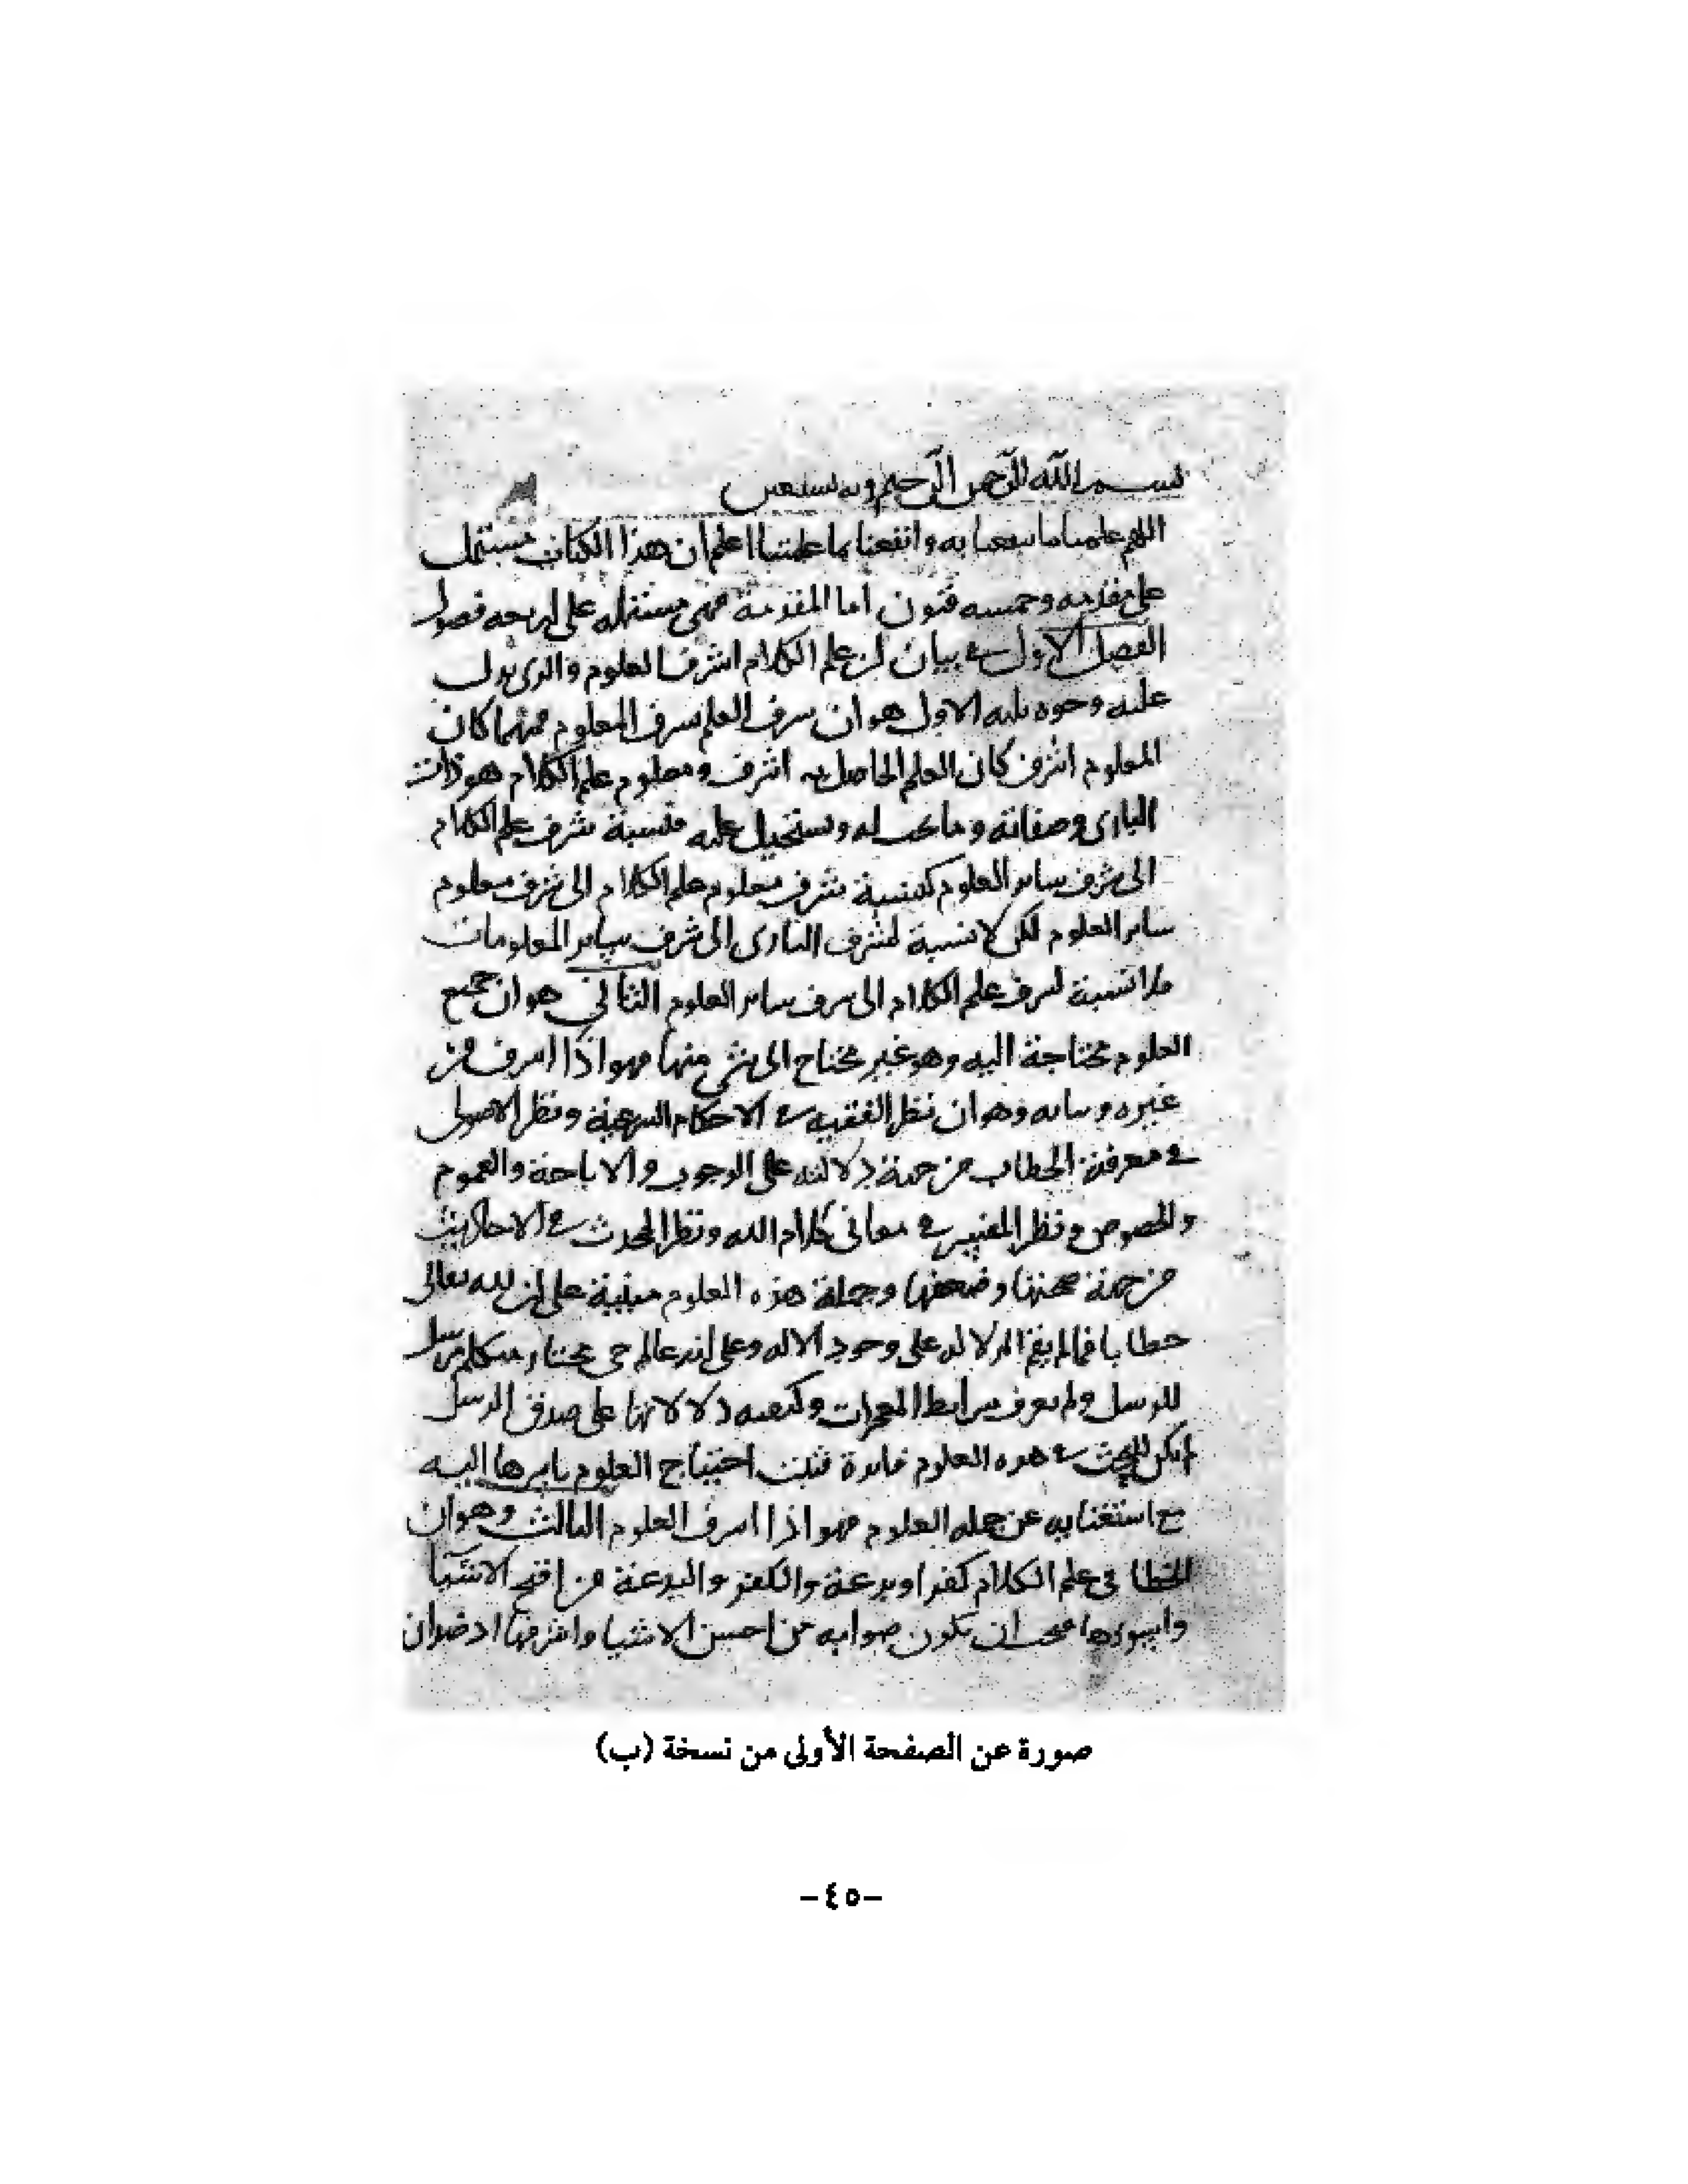 بسم الله الرحمن الرحيم وبه نستعين
اللهم علمنا ما ينفعنا به وانفعنا بما علمتنا اعلم ان هذا الكتاب مشتمل
على مقدمه وخمسه فنون اما المقدمة فهي مشتمله على اربعه فصول
الفصل الاول في بيان ان علم الكلام اشرف العلوم والذي يدل
عليه وجوه ثلثه الاول هو ان شرف العلم بشرف المعلوم فمهما كان
المعلوم اشرف كان العلم الحاصل به اشرف ومعلوم علم الكلام هو ذات
الباري وصفاته وما يجب له ويستحيل عليه فنسبة شرف علم الكلام
الى شرف ساير العلوم كنسبة شرف معلوم علم الكلام الى شرف معلوم
ساير العلوم لكن لا نسبة لشرف الباري الى شرف ساير المعلومات
فلا نسبة لشرف علم الكلام الى شرف ساير العلوم الثاني هو ان جميع
العلوم محتاجة اليه وهو غير محتاج الى شي منها فهو اذا اشرف من
غيره وبيانه وهو ان نظر الفقيه في الاحكام الشرعية ونظر الاصولي
في معرفة الخطاب من جهة دلالته على الوجوب والاباحة والعموم
والخصوص ونظر المفسر في معاني كلام الله ونظر المحدث في الاحاديث
من جهة صحتها وضعفها وجملة هذه العلوم مبنية على ان لله تعالى
خطابا فما لم يقم الدلاله على وجود الاله وعلى انه عالم حي مختار متكلم مرسل
للرسل ولم يعرف شرايط المعجزات وكيفيه دلالاتها على صدق الرسل
لم يكن للبحث في هذه العلوم فايدة فثبت احتياج العلوم باسرها اليه
مع استغنايه عن جمله العلوم فهو اذا اشرف العلوم الثالث وهو ان
الخطا في علم الكلام كفر او بدعة والكفر والبدعة من اقبح الاشيا
واسوءها فيجب ان تكون صوابه من احسن الاشيا واشرفها اذ ضدان
صورة عن الصفحة الأولى من نسخة (ب)
-٤٥-